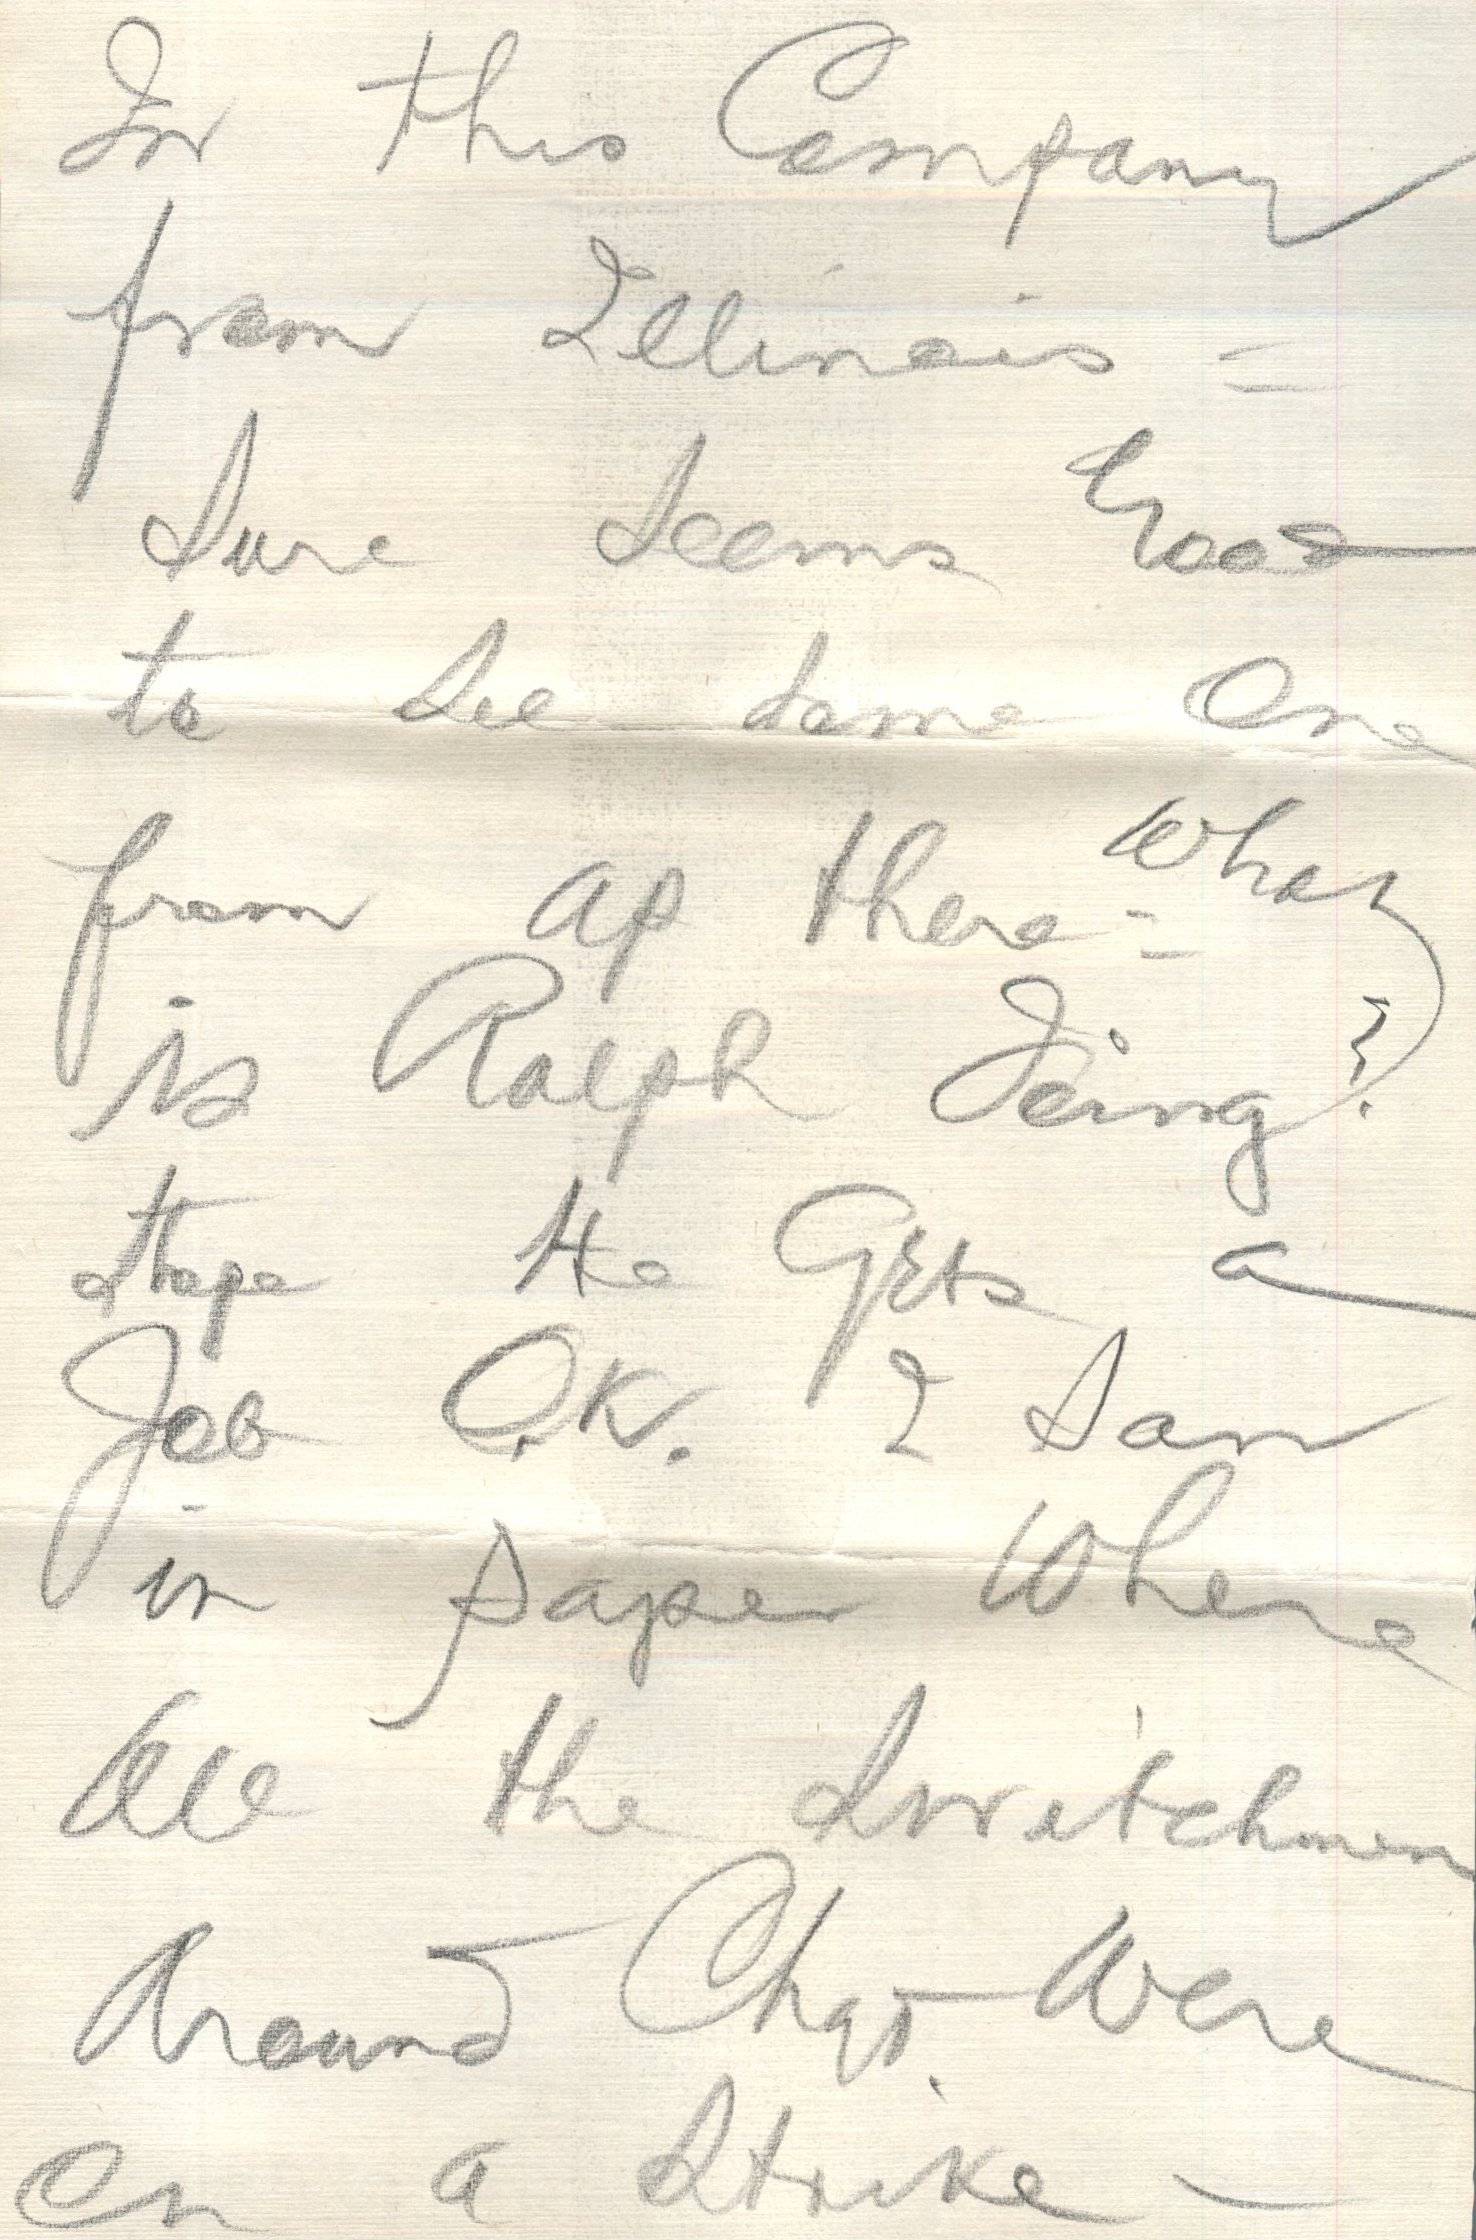 In this Company
from Illinois =
Sure seems Good
to see some One
from up there = What
is Ralph Doing?
Hope He Gets a
Job O.K. I saw
in paper Where
All the switchmen
Around Chgo. Were
On a strike -